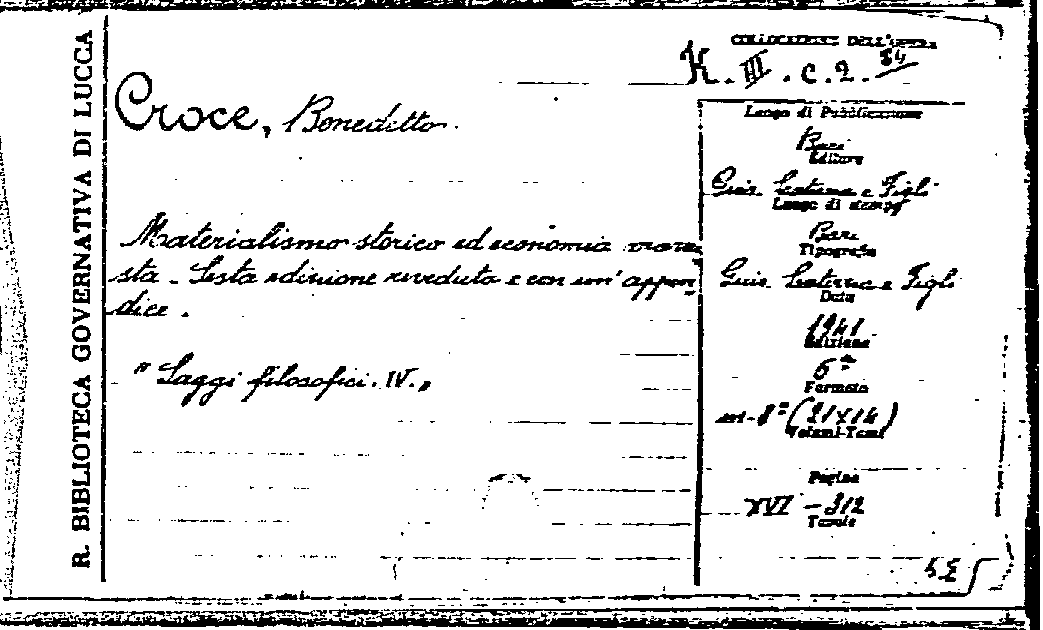 R. BIBLIOTECA GOVERNATIVA DI LUCCA
COLLOCAZIONE DELL'OPERA
K. III. c. 2. 54
Croce, Benedetto.
Materialismo storico ed economia marxi
sta. Sesta edizione riveduta e con un' appen-
dice.
"Saggi filosofici. IV."
Luogo di Pubblicazione
Bari
Editore
Gius. Laterza e Figli
Luogo di stampa
Bari
Tipografia
Gius. Laterza e Figli
Data
1941
Edizione
6ª
Formato
in-8° (21x14)
Volumi-Tomi
Pagine
XVI - 312
Tavole